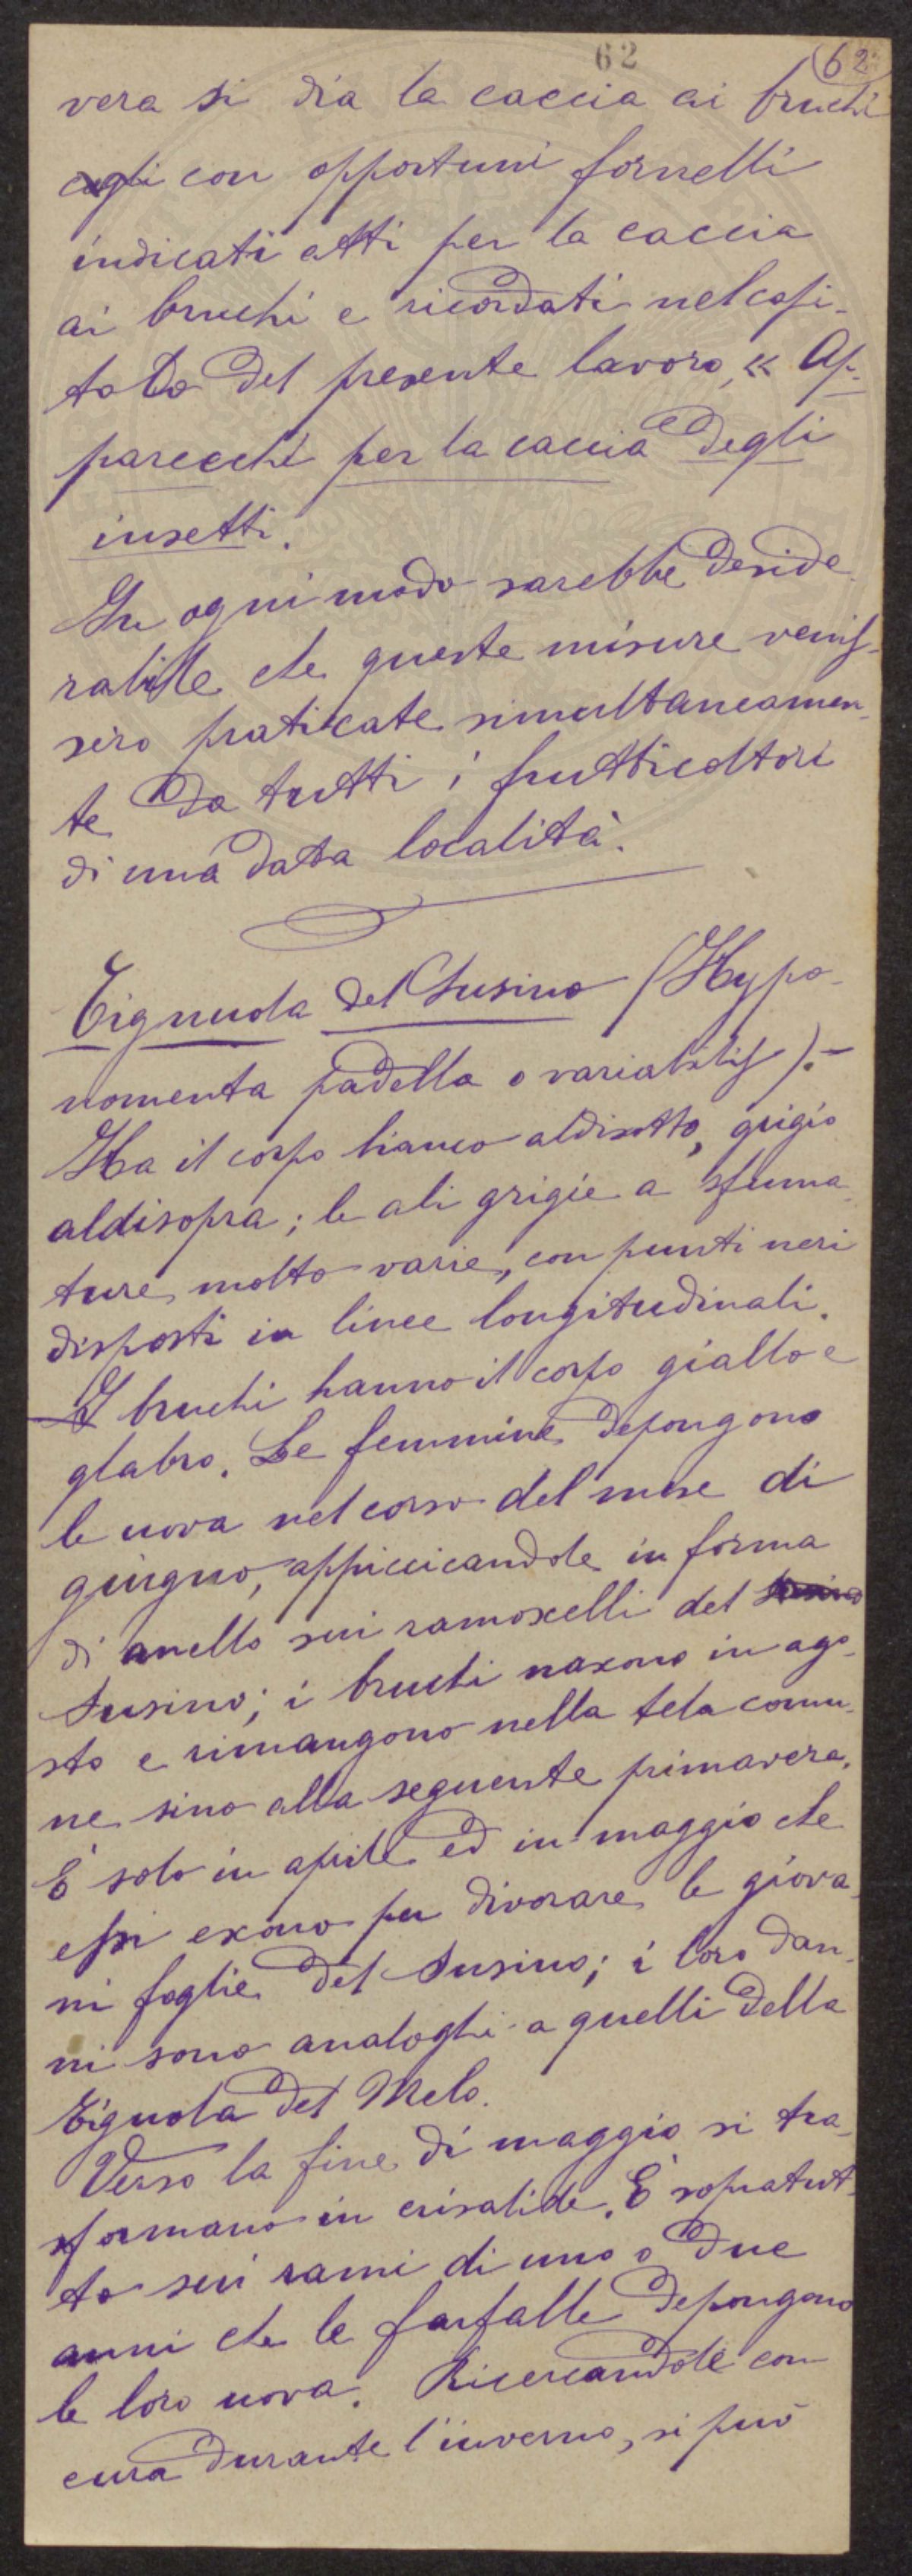 62
62
vera si dia la caccia ai bruchi
con opportuni fornelli
indicati atti per la caccia
ai bruchi e ricordati nel capi-
tolo del presente lavoro, « Ap-
parecchi per la caccia degli
insetti.
In ogni modo sarebbe deside
rabile che queste misure venis-
sero praticate simultaneamen-
te da tutti i frutticoltori
di una data località.
Tignuola del Susino (Hypo-
nomenta padella o variabilis).-
Ha il corpo bianco aldisotto, grigio
aldisopra; le ali grigie a sfuma-
ture molto varie, con punti neri
disposti in linee longitudinali.
I bruchi hanno il corpo giallo e
glabro. Le femmine depongono
le uova nel corso del mese di
giugno, appiccicandole in forma
di anello sui ramoscelli del
Susino; i bruchi nascono in ago-
sto e rimangono nella tela comu-
ne sino alla seguente primavera.
È solo in aprile ed in maggio che
essi escono per divorare le giova-
ni foglie del Susino; i loro dan-
ni sono analoghi a quelli della
Tignola del Melo.
Verso la fine di maggio si tra-
sformano in crisalide. È sopratut-
to sui rami di uno o due
anni che le farfalle depongono
le loro uova. Ricercandole con
cura durante l'inverno, si può